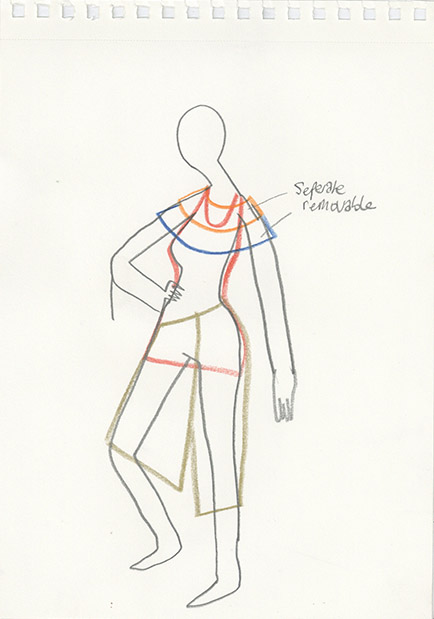 Seperate
removable